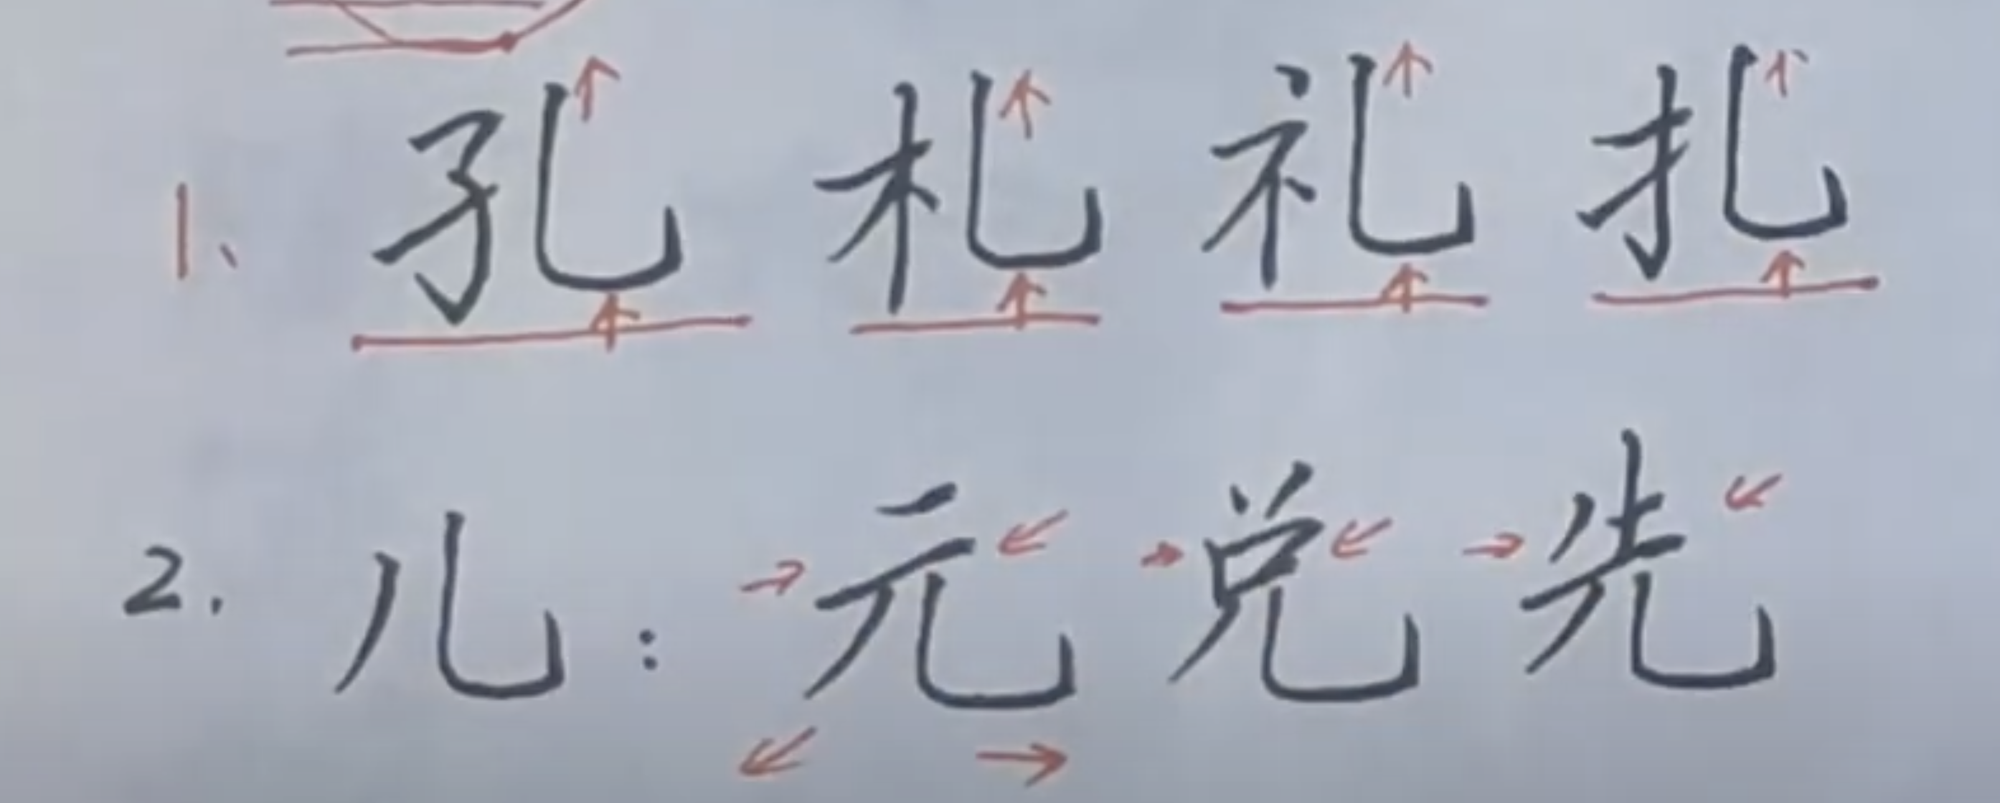 1、孔 札 礼 扎
2.儿：元 兑 先